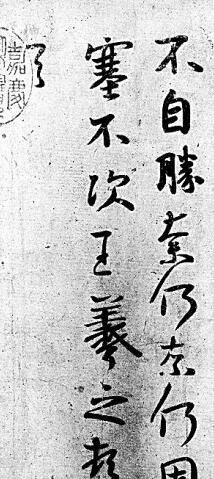 不自勝奈何奈何因
塞不次王羲之頓
嘉慶